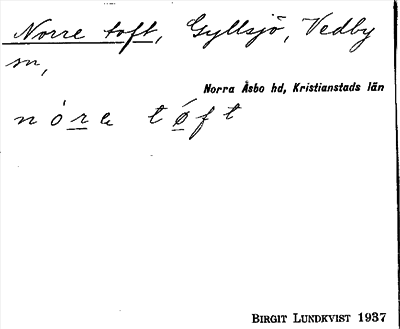 Norre toft, Gyllsjö, Vedby
sn,
Norra Åsbo hd, Kristianstads län
nóre tǿft
BIRGIT LUNDKVIST 1937